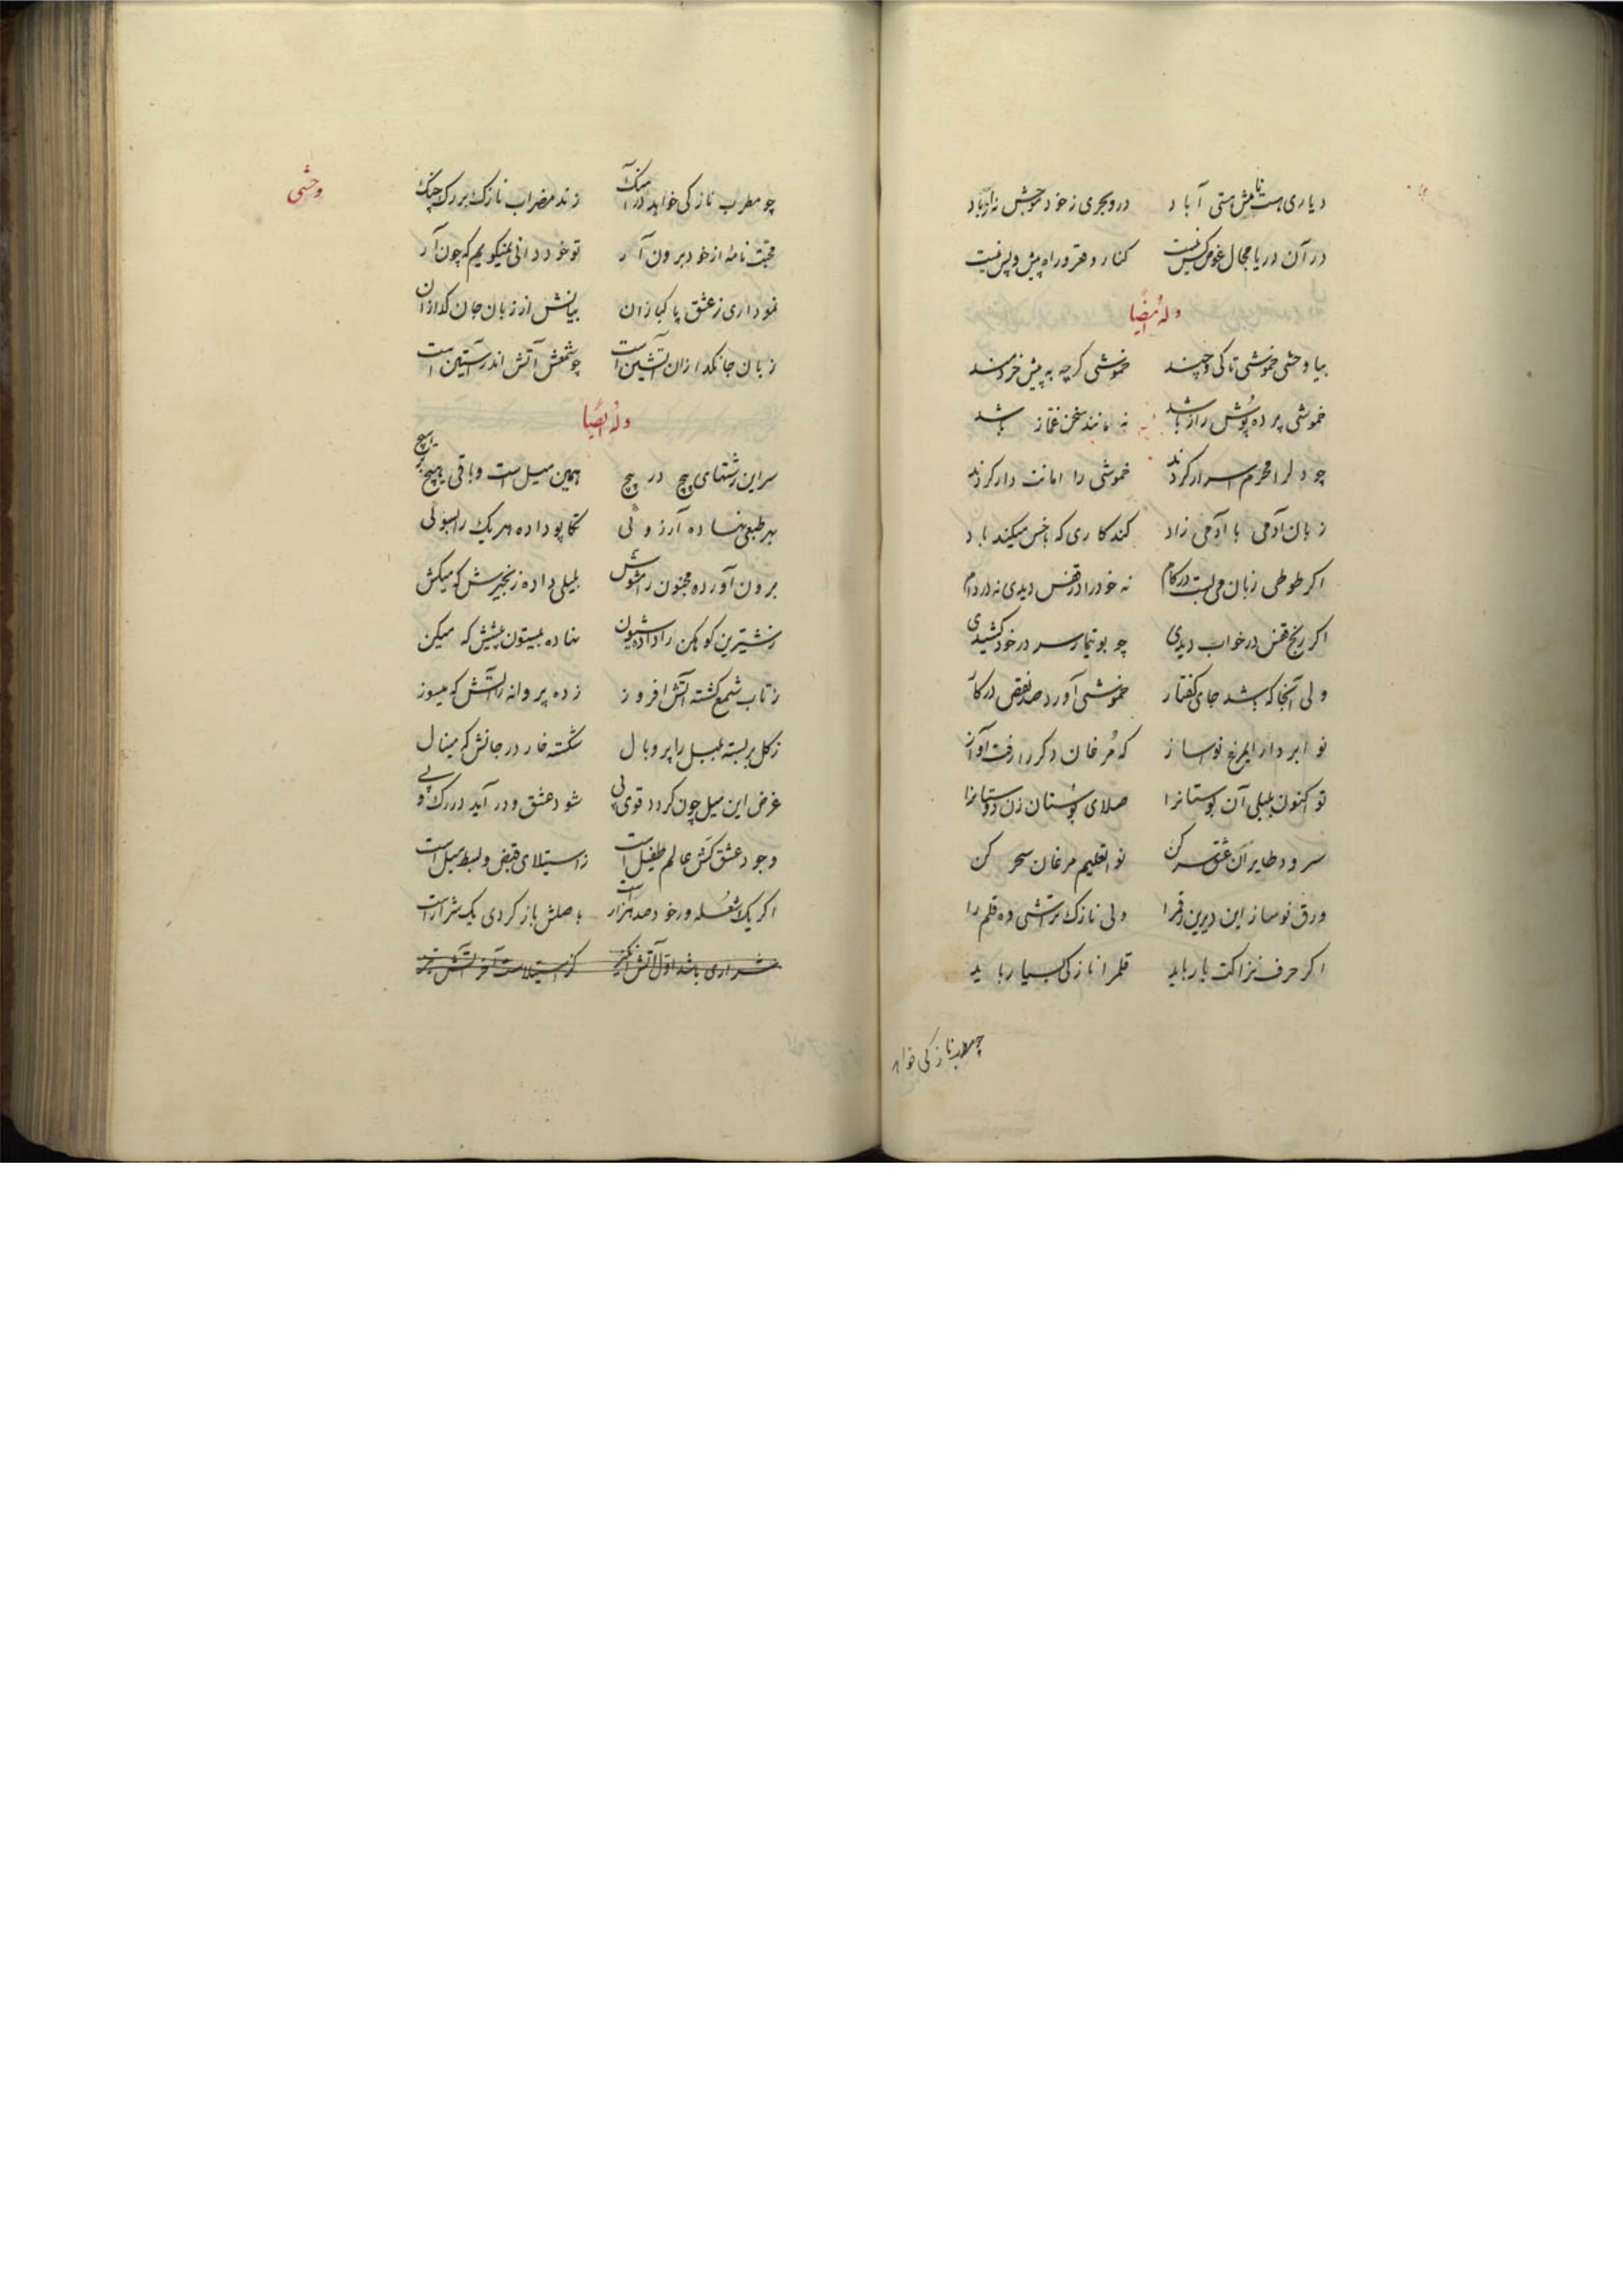 دیاری هست نامش هستی آباد در و بحری ز خود موجش نه از باد
در آن دریا مجال غوص کس نیست کنار و قعر و راه پیش و پس نیست
وله ایضا
بیا وحشی خموشی تا کی و چند خموشی گرچه به پیش خردمند
خموشی پرده پوش راز باشد نه مانند سخن غماز باشد
چو دل را محرم اسرار کردند خموشی را امانت دار کردند
زبان آدمی با آدمی زاد کند کاری که با خس میکند باد
اکر طوطی زبان می بست در کام نه خود را در قفس دیدی نه در دام
اکر رنج قفس در خواب دیدی چو بوتیمار سر در خود کشیدی
ولی آنجا که باشد جای کفتار خموشی آورد صد نقص در کار
نوا بردار ای مرغ نوا ساز که مرغان دکر را رفت آواز
تو اکنون بلبلی آن بوستانرا صلای بوستان زن دوستانرا
سرود طایران عشق سر کن نوا تعلیم مرغان سحر کن
ورق نو ساز این دیرین رقم را ولی نازک تراشی ده قلم را
اکر حرف نزاکت بار باید قلم را نازکی بسیار باید
چو مطرب نازکی خواهد
وحشی
چو مطرب نازکی خواهد در آهنک زند مضراب نازک بر رک چنک
محبت نامهٔ از خود برون آر تو خود دانی نمیکویم که چون آر
نموداری ز عشق پاکبازان بیانش از زبان جان کدازان
زبان جانکدازان آتشین است چو شمعش آتش اندر آستین است
وله ایضا
سر این رشتهای پیچ در پیچ همین میل است و باقی هیچ بر هیچ
بهر طبعی نهاده آرزوئی تکاپو داده هر یک را بسوئی
برون آورده مجنون را مشوش بلیلی داده زنجیرش که میکش
ز شیرین کوهکن را داده شیون نهاده بیستون پیشش که میکن
ز تاب شمع کشته آتش افروز زده پروانه را آتش که میسوز
ز کل بر بسته بلبل را پر و بال شکسته خار در جانش که مینال
غرض این میل چون کردد قوی پی شود عشق و در آید در رک و پی
وجود عشق کش عالم طفیل است ز استیلای قبض و بسط میل است
اکر یک شعله ور خود صد هزار است باصلش باز کردی یک شرار است
شراری باشد اول آتش انکیز کز استیلاست آخر آتش تیز